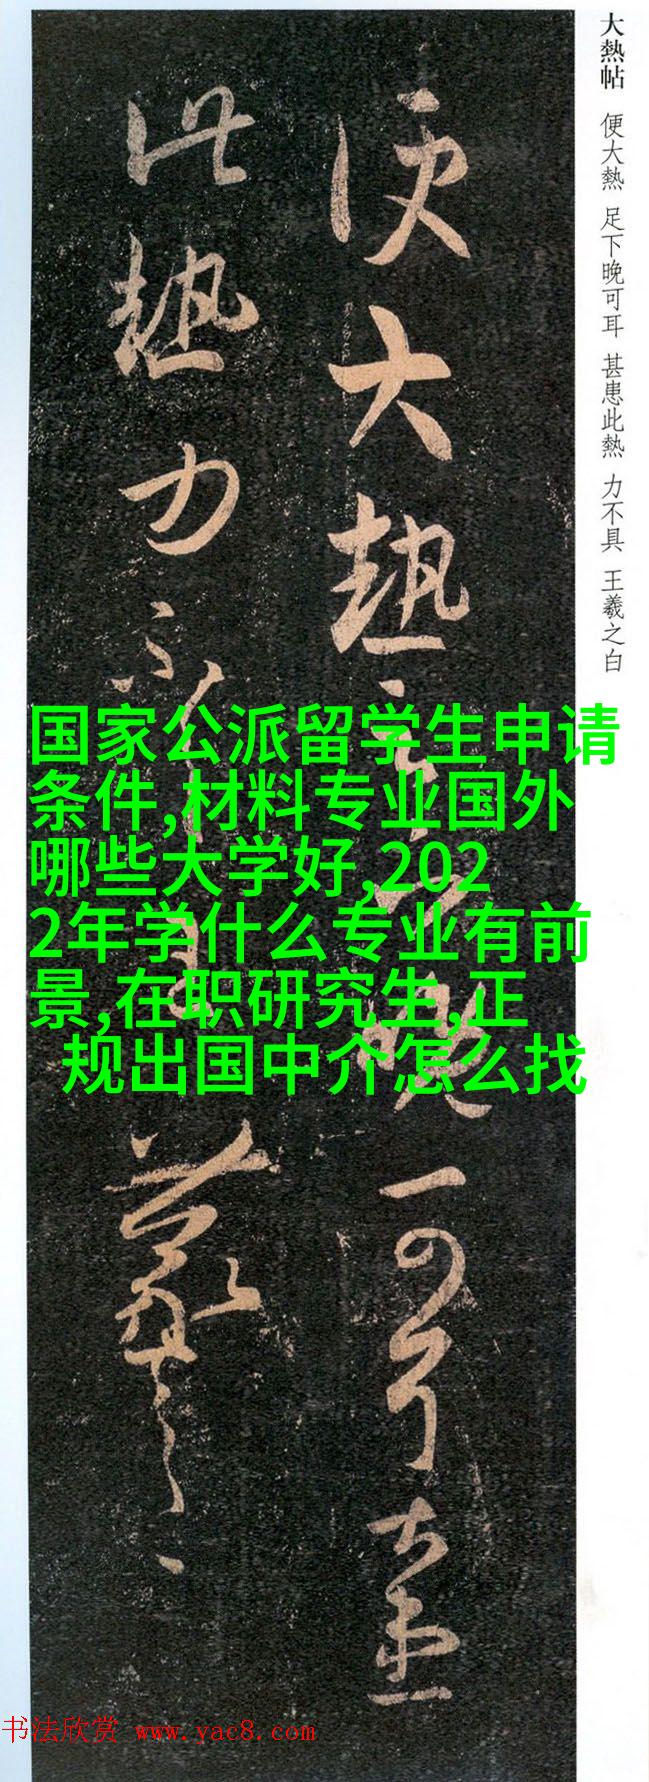 大熱帖 便大熱 足下晚可耳 甚患此熱 力不具 王羲之白
便大熱足下晚可耳甚患
此熱力不具羲之
国家公派留学生申请
条件,材料专业国外
哪些大学好,202
2年学什么专业有前
景,在职研究生,正
规出国中介怎么找
书法欣赏 www.yac8.com